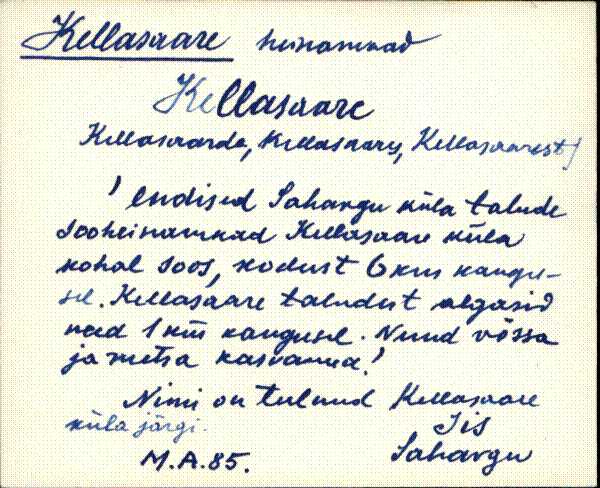 Kellasaare heinamaad
Kellasaare
Kellasaarde, Kellasaares, Kellasaarest/
'endised Sahargu küla talude
sooheinamaad Kellasaare küla
kohal soos, kodust 6 km kaugu-
sel. Kellasaare taludest algasid
need 1 km kaugusel. Nüüd võssa
ja metsa kasvanud.'
Nimi on tulnud Kellasaare
küla järgi. Iis
Sahargu
M.A.85.